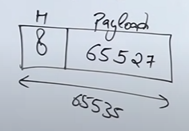 H Payload
8 65527
65535